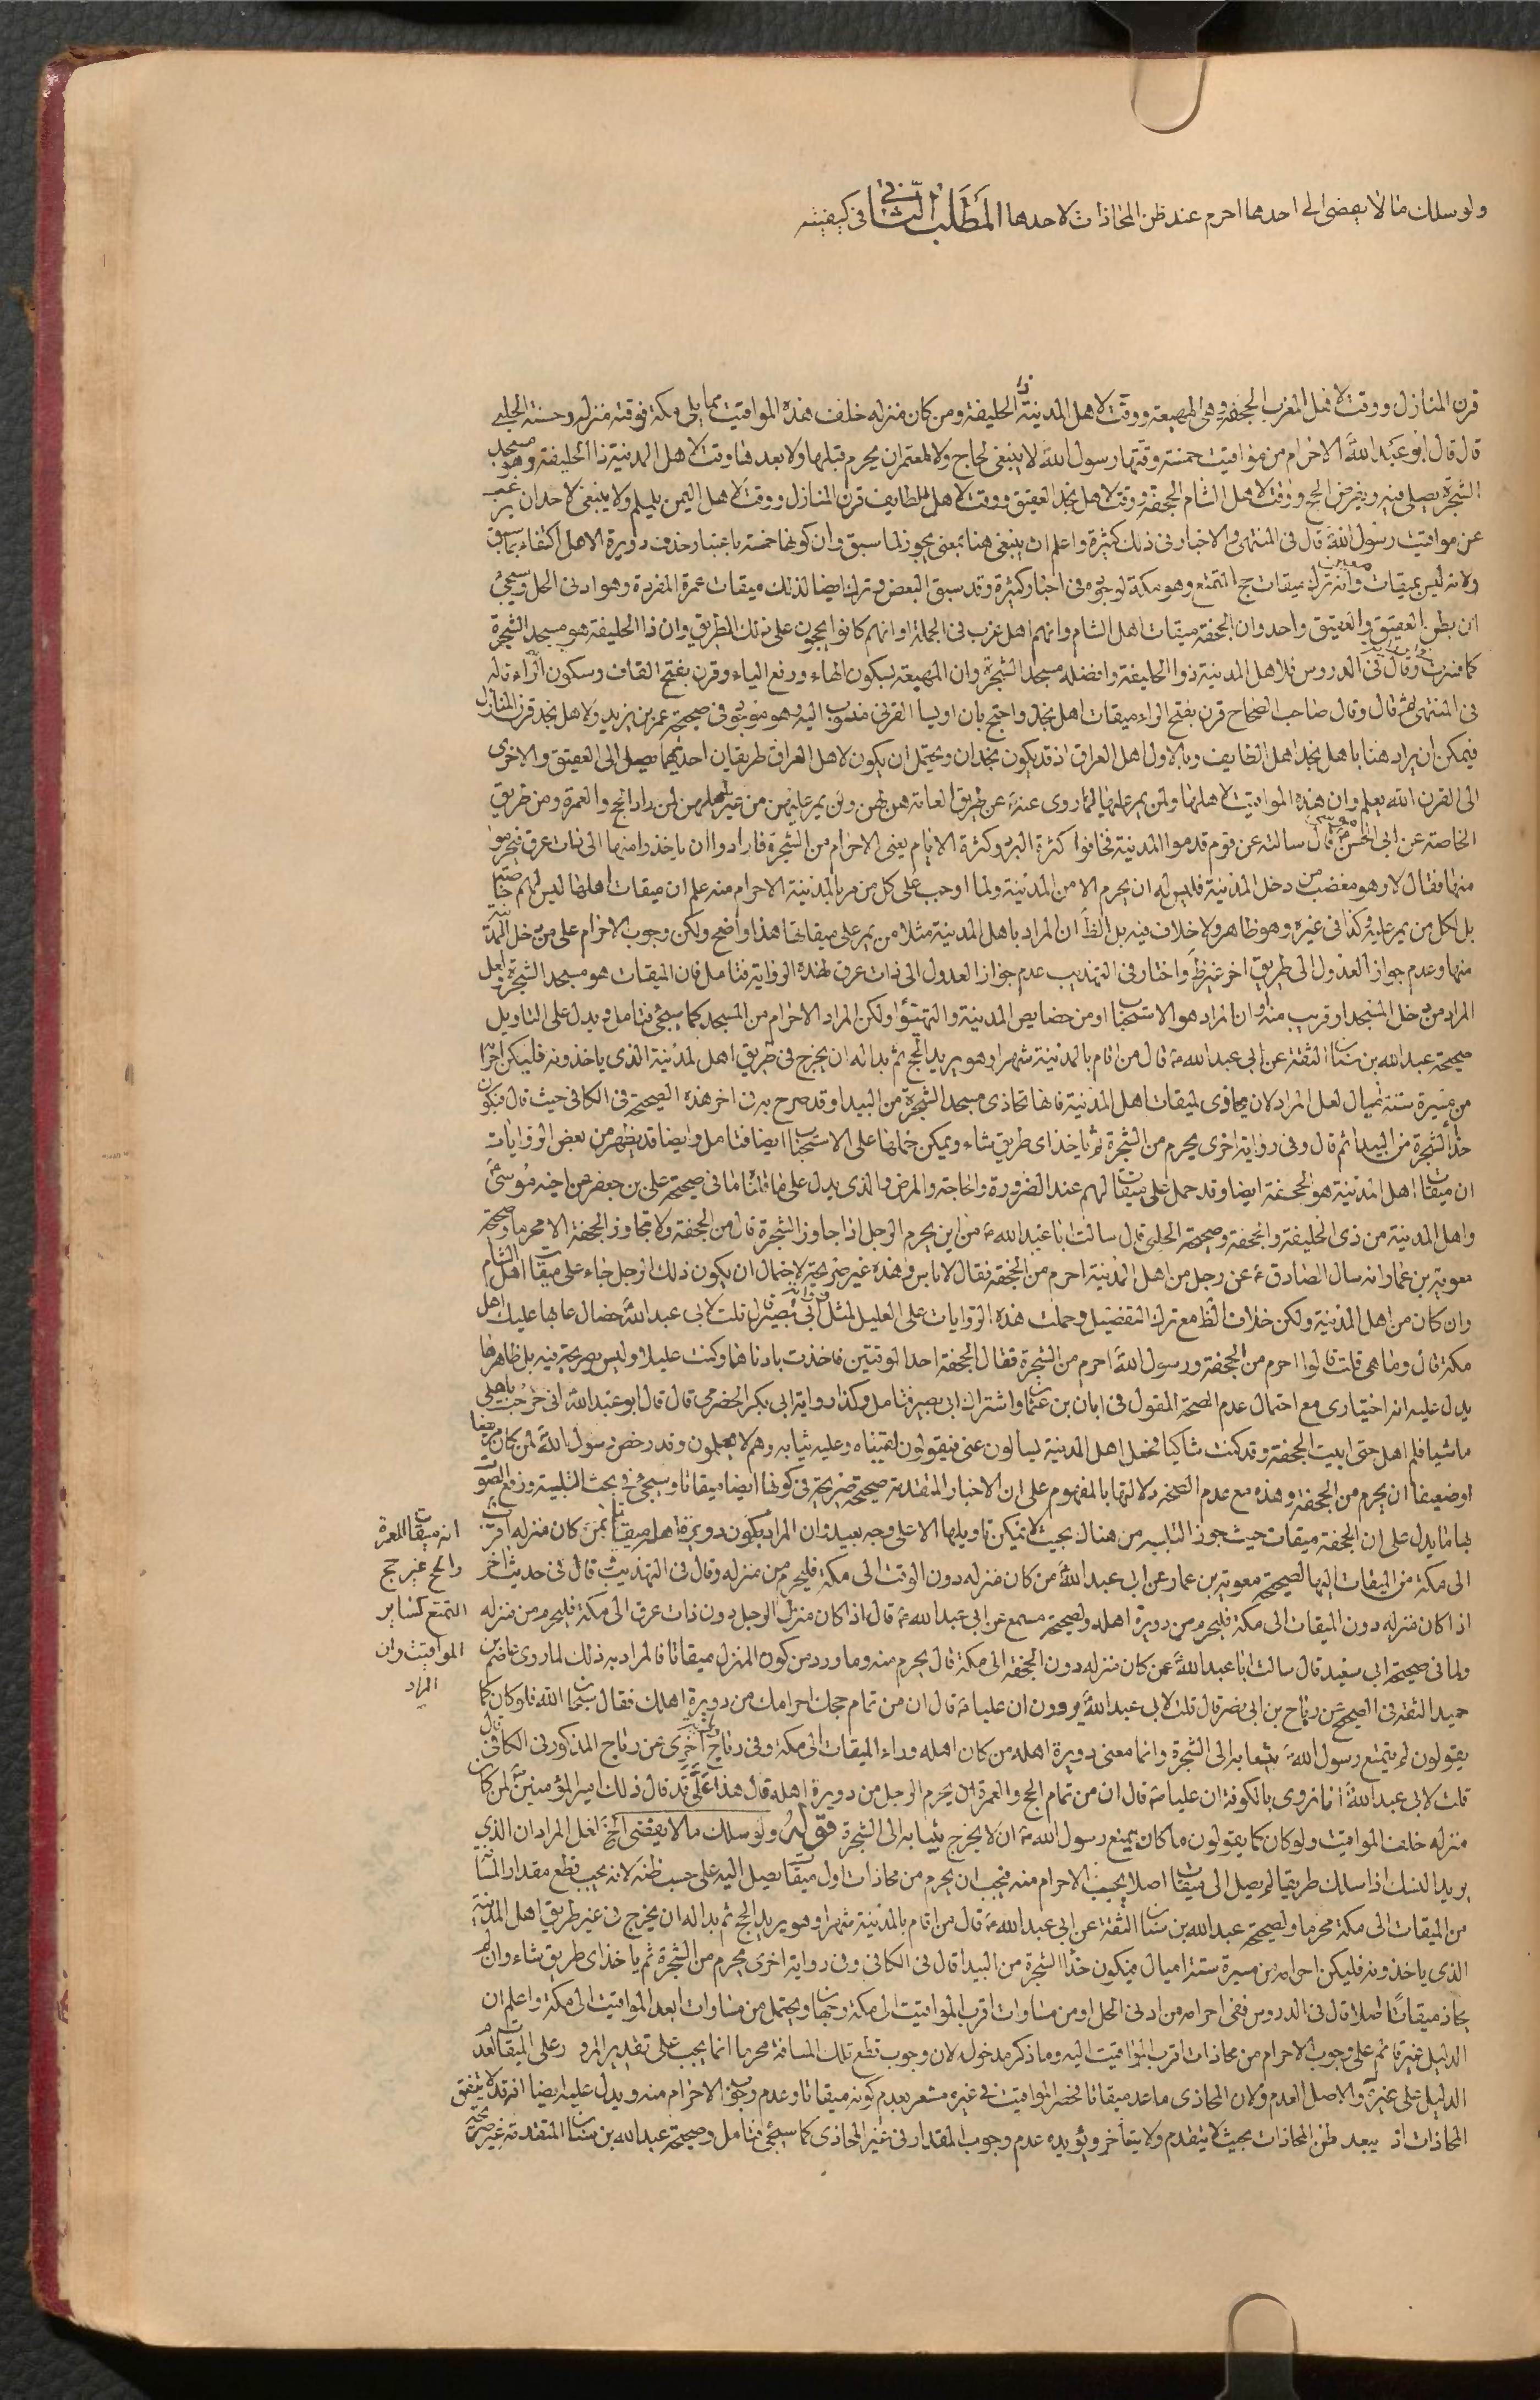 ولو سلك ما لا يفضى الى احدها احرم عند ظن المحاذات لاحدها المطلب الثانى فى كيفيته
قرن المنازل ووقت لاهل المغرب الجحفة وهى المهيعة ووقت لاهل المدينة ذا الحليفة ومن كان منزله خلف هذه المواقيت مما يلى مكة فوقته منزله وحسنة الحلبى
قال قال ابو عبد الله الاحرام من مواقيت خمسة وقتها رسول الله لا ينبغى لحاج ولا لمعتمر ان يحرم قبلها ولا بعدها وقت لاهل المدينة ذا الحليفة وهو مسجد
الشجرة يصلى فيه ويفرض الحج ووقت لاهل الشام الجحفة ووقت لاهل نجد العقيق ووقت لاهل الطايف قرن المنازل ووقت لاهل اليمن يلملم ولا ينبغى لاحد ان يرغب
عن مواقيت رسول الله قال فى المنتهى والاخبار فى ذلك كثيرة واعلم ان ينبغى هنا بمعنى يجوز لما سبق وان كونها خمسة باعتبار حذف دويرة الاهل اكتفاء بما سبق
ولانه ليس بميقات معين وانه ترك ميقات حج التمتع وهو مكة لوجوه فى اخبار كثيرة وقد سبق البعض وترك ايضا لذلك ميقات عمرة المفردة وهو ادنى الحل وسيجئ
ان بطن العقيق والعقيق واحد وان الجحفة ميقات اهل الشام وانهم اهل غرب فى الجملة او انهم كانوا يجيؤن على تلك الطريق وان ذا الحليفة هو مسجد الشجرة
كما فسرت وقال فى الدروس فلاهل المدينة ذو الحليفة وافضله مسجد الشجرة وان المهيعة بسكون الهاء ورفع الياء وقرن بفتح القاف وسكون الراء قاله
فى المنتهى ثم قال وقال صاحب الصحاح قرن بفتح الراء ميقات اهل نجد واحتج بان اويسا القرنى منسوب اليه وهو موجود فى صحيحة عمر بن يزيد ولاهل نجد قرن المنازل
فيمكن ان يراد هنا باهل نجد اهل الطايف وبالاول اهل العراق اذ قد يكون نجدان ويحتمل ان يكون لاهل العراق طريقان احديهما يصل الى العقيق والاخرى
الى القرن الله يعلم وان هذه المواقيت لاهلها ولمن يمر عليها لما روى عنه عن طريق العامة هن لهن ولمن يمر عليهن من غير اهلهن لمن اراد الحج والعمرة ومن طريق
الخاصة عن ابى الحسن موسى قال سالته عن قوم قدموا المدينة فخافوا كثرة البرد وكثرة الايام يعنى الاحرام من الشجرة فارادوا ان ياخذوا منها الى ذات عرق فيحرموا
منها فقال لا وهو مغضب من دخل المدينة فليس له ان يحرم الا من المدينة ولما اوجب على كل من مر بالمدينة الاحرام منه علم ان ميقات اهلها ليس لهم خاصة
بل لكل من يمر عليه وكذا فى غيره وهو ظاهر ولا خلاف فيه بل الظ ان المراد باهل المدينة مثلا من يمر على ميقاتها هذا واضح ولكن وجوب الاحرام على من دخل المدينة
منها وعدم جواز العدول الى طريق اخر غير ظ واختار فى التهذيب عدم جواز العدول الى ذات عرق لهذه الرواية فتامل فان الميقات هو مسجد الشجرة ولعل
المراد من دخل المسجد او قريب منه او ان المراد هو الاستحباب او من خصايص المدينة والتهيؤ او لكن المراد الاحرام من المسجد كما سيجئ فتامل ويدل على التاويل
صحيحة عبد الله بن سنان الثقة عن ابى عبد الله ع قال من اقام بالمدينة شهرا وهو يريد الحج ثم بدا له ان يخرج فى طريق اهل المدينة الذى ياخذونه فليكن احرامه
من مسيرة ستة اميال لعل المراد لانه محاذى لميقات اهل المدينة فانها تحاذى مسجد الشجرة من البيدا وقد صرح به فى اخر هذه الصحيحة فى الكافى حيث قال فيكون
حذاء الشجرة من البيدا ثم قال وفى رواية اخرى يحرم من الشجرة ثم ياخذ اى طريق شاء ويمكن حملها على الاستحباب ايضا فتامل وايضا قد يظهر من بعض الروايات
ان ميقات اهل المدينة هو الجحفة ايضا وقد حمل على ميقات لهم عند الضرورة والحاجة والمرض والذى يدل على ما قلناه ما فى صحيحة على بن جعفر عن اخيه موسى
واهل المدينة من ذى الحليفة والجحفة وصحيحة الحلبى قال سالت ابا عبد الله ع من اين يحرم الرجل اذا جاوز الشجرة قال من الجحفة ولا تجاوز الجحفة الا محرما وصحيحة
معوية بن عمار انه سال الصادق ع عن رجل من اهل المدينة احرم من الجحفة فقال لا باس وهذه غير صريحة لاحتمال ان يكون ذلك الرجل جاء على ميقات اهل الشام
وان كان من اهل المدينة ولكن خلاف الظ مع ترك التفصيل وحملت هذه الروايات على العليل لمثل رواية ابى بصير قال قلت لابى عبد الله خصال عابها عليك اهل
مكة قال وما هى قلت قالوا احرم من الجحفة ورسول الله احرم من الشجرة فقال الجحفة احد الوقتين فاخذت بادناهما وكنت عليلا وليس بصريحة فيه بل ظاهرها
يدل عليه انه اختيارى مع احتمال عدم الصحة المقول فى ابان بن عثمان واشتراك ابى بصير فتامل وكذا رواية ابى بكر الحضرمى قال قال ابو عبد الله انى خرجت باهلى
ماشيا فلم اهل حتى اتيت الجحفة وقد كنت شاكيا فجعل اهل المدينة يسالون عنى فيقولون لقيناه وعليه ثيابه وهم لا يعلمون وقد رخص رسول الله لمن كان مريضا
او ضعيفا ان يحرم من الجحفة وهذه مع عدم الصحة دلالتها بالمفهوم على ان الاخبار المتقدمة صحيحة صريحة فى كونها ايضا ميقاتا وسيجئ فى بحث التلبية ورفع الصوت
بها ما يدل على ان الجحفة ميقات حيث جوز التلبيه من هناك بحيث لا يمكن تاويلها الا على وجه بعيد وان المراد بكون دويرة اهله ميقاتا لمن كان منزله اقرب
الى مكة من الميقات اليها لصحيحة معوية بن عمار عن ابى عبد الله من كان منزله دون الوقت الى مكة فليحرم من منزله وقال فى التهذيب قال فى حديث اخر
اذا كان منزله دون الميقات الى مكة فليحرم من دويرة اهله ولصحيحة مسمع عن ابى عبد الله ع قال اذا كان منزل الرجل دون ذات عرق الى مكة فليحرم من منزله
ولما فى صحيحة ابى سعيد قال سالت ابا عبد الله عمن كان منزله دون الجحفة الى مكة قال يحرم منه وما ورد من كون المنزل ميقاتا فالمراد به ذلك لما روى عاصم بن
حميد الثقة فى الصحيح عن رباح بن ابى نصر قال قلت لابى عبد الله يروون ان عليا ع قال ان من تمام حجك احرامك من دويرة اهلك فقال سبحان الله فلو كان كما
يقولون لم يتمتع رسول الله ص بثيابه الى الشجرة وانما معنى دويرة اهله من كان اهله وراء الميقات الى مكة وفى رواية اخرى عن رباح المذكور فى الكافى قال
قلت لابى عبد الله انا نروى بالكوفة ان عليا ص قال ان من تمام الحج والعمرة ان يحرم الرجل من دويرة اهله فهل قال هذا على قد قال ذلك امير المؤمنين لمن كان
منزله خلف المواقيت ولو كان كما يقولون ما كان يمنع رسول الله ص ان لا يخرج بثيابه الى الشجرة قوله ولو سلك ما لا يفضى الخ لعل المراد ان الذى
يريد النسك اذا سلك طريقا لم يصل الى ميقات اصلا يجب الاحرام منه فيجب ان يحرم من محاذات اول ميقات يصل اليه على حسب ظنه لانه يجب قطع مقدار المسافة
من الميقات الى مكة محرما ولصحيحة عبد الله بن سنان الثقة عن ابى عبد الله ع قال من اقام بالمدينة شهرا وهو يريد الحج ثم بدا له ان يخرج فى غير طريق اهل المدينة
الذى ياخذونه فليكن احرامه من مسيرة ستة اميال فيكون حذاء الشجرة من البيدا قال فى الكافى وفى رواية اخرى يحرم من الشجرة ثم ياخذ اى طريق شاء وان لم
يحاذ ميقاتا اصلا قال فى الدروس ففى احرامه من ادنى الحل او من مساوات اقرب المواقيت الى مكة وجهان ويحتمل من مساوات ابعد المواقيت الى مكة واعلم ان
الدليل غير قائم على وجوب الاحرام من محاذات اقرب المواقيت اليه وما ذكر مدخول لان وجوب قطع تلك المسافة محرما انما يجب على تقدير المرور على الميقات لعدم
الدليل على غيره والاصل العدم ولان المحاذى ما عد ميقاتا فحصر المواقيت فى غيره مشعر بعدم كونه ميقاتا وعدم وجوب الاحرام منه ويدل عليه ايضا انه قد لا يتفق
المحاذات اذ يبعد ظن المحاذات بحيث لا يتقدم ولا يتأخر ويؤيده عدم وجوب المقدار فى غير المحاذى كما سيجئ فتامل وصحيحة عبد الله بن سنان المتقدمة غير صريحة
انه ميقات للعمرة
والحج غير حج
التمتع كساير
المواقيت وان
المراد